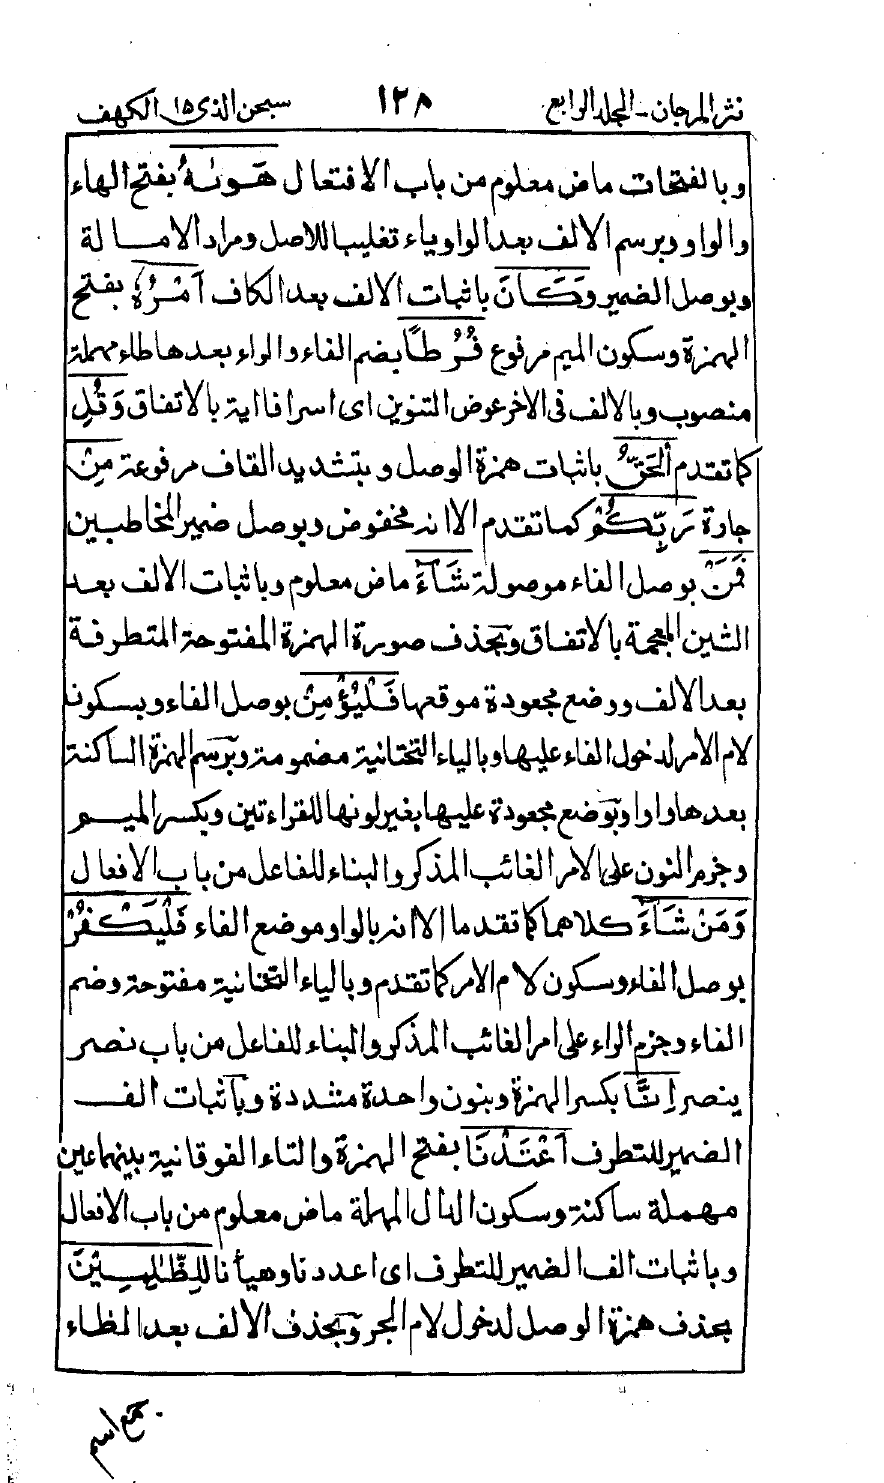 نثر المرجان - المجلد الرابع ١٢٨ سبحن الذى ١٥ الكهف
وبالفتحات ماض معلوم من باب الافتعال هَوٰىهُ بفتح الهاء
والواو وبرسم الالف بعد الواو ياء تغليبا للاصل ومراد الامالة
وبوصل الضمير وَكَانَ باثبات الالف بعد الكاف اَمْرُهٗ بفتح
الهمزة وسكون الميم مرفوع فُرُطًا بضم الفاء والراء بعدها طاء مهملة
منصوب وبالالف فى الاخر عوض التنوين اى اسرافا اية بالاتفاق وَقُلِ
كما تقدم الْحَقُّ باثبات همزة الوصل وبتشديد القاف مرفوعة مِنْ
جارة رَبِّكُمْ كما تقدم الا انه مخفوض وبوصل ضمير المخاطبين
فَمَنْ بوصل الفاء موصولة شَآءَ ماض معلوم وباثبات الالف بعد
الشين المعجمة بالاتفاق وبحذف صورة الهمزة المفتوحة المتطرفة
بعد الالف ووضع مجعودة موقعها فَلْيُؤْمِنْ بوصل الفاء وبسكون
لام الامر لدخول الفاء عليها وبالياء التحتانية مضمومة وبرسم الهمزة الساكنة
بعدها واوا وبوضع مجعودة عليها بغير لونها للقراءتين وبكسر الميم
وجزم النون على الامر الغائب المذكر والبناء للفاعل من باب الافعال
وَمَنْ شَآءَ كلاهما كما تقدما الا انه بالواو موضع الفاء فَلْيَكْفُرْ
بوصل الفاء وسكون لام الامر كما تقدم وبالياء التحتانية مفتوحة وضم
الفاء وجزم الراء على امر الغائب المذكر والبناء للفاعل من باب نصر
ينصر اِنَّآ بكسر الهمزة وبنون واحدة مشددة وباثبات الف
الضمير للتطرف اَعْتَدْنَا بفتح الهمزة والتاء الفوقانية بينهما عين
مهملة ساكنة وسكون الدال المهملة ماض معلوم من باب الافعال
وباثبات الف الضمير للتطرف اى اعددنا وهيأنا لِلظّٰلِمِيْنَ
بحذف همزة الوصل لدخول لام الجر وبحذف الالف بعد الظاء
جمع اسم